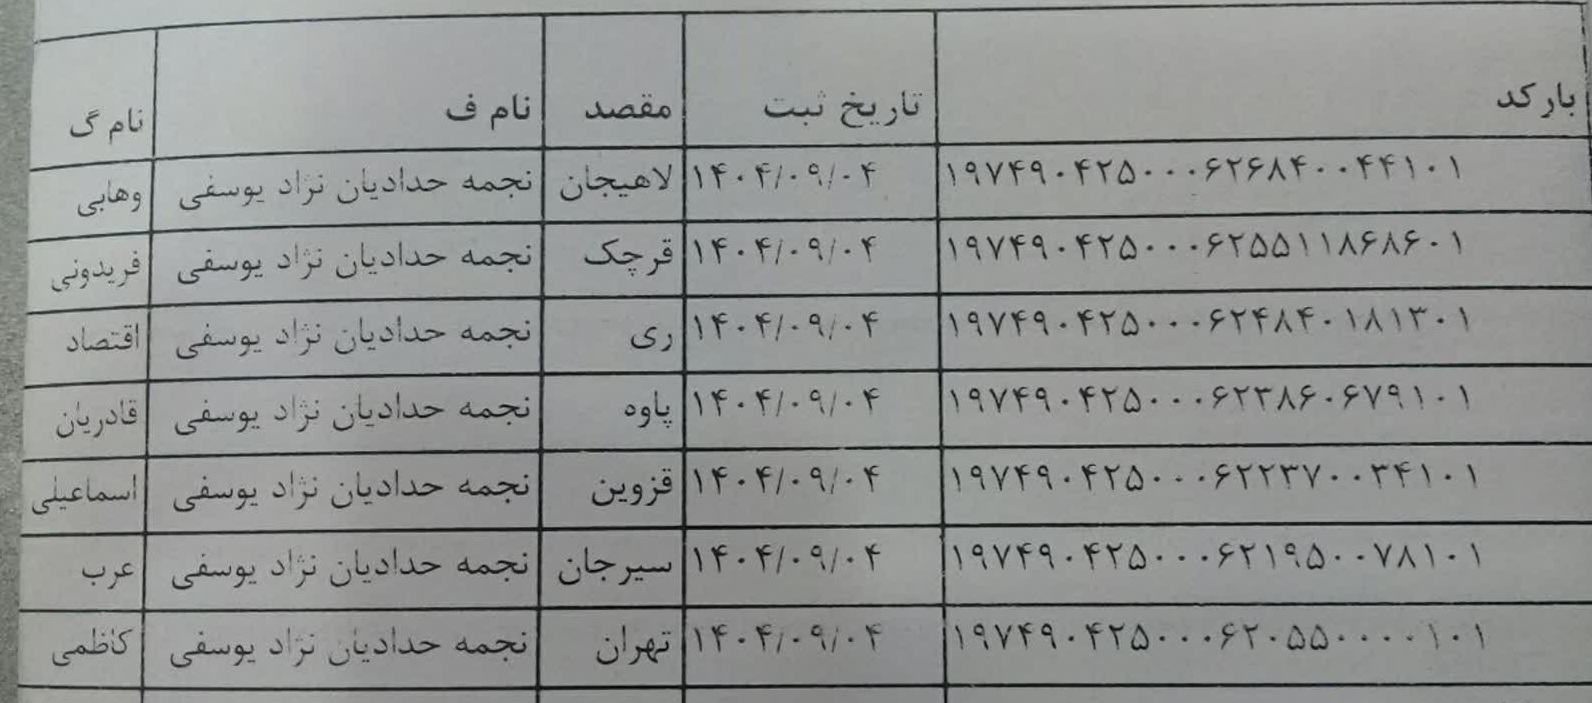 بارکد تاریخ ثبت مقصد نام ف نام گ
۱۹۷۴۹۰۴۲۵۰۰۰۶۲۶۸۴۰۰۴۴۱۰۱ ۱۴۰۴/۰۹/۰۴ لاهیجان نجمه حدادیان نژاد یوسفی وهابی
۱۹۷۴۹۰۴۲۵۰۰۰۶۲۵۵۱۱۸۶۸۶۰۱ ۱۴۰۴/۰۹/۰۴ قرچک نجمه حدادیان نژاد یوسفی فریدونی
۱۹۷۴۹۰۴۲۵۰۰۰۶۲۴۸۴۰۱۸۱۳۰۱ ۱۴۰۴/۰۹/۰۴ ری نجمه حدادیان نژاد یوسفی اقتصاد
۱۹۷۴۹۰۴۲۵۰۰۰۶۲۳۸۶۰۶۷۹۱۰۱ ۱۴۰۴/۰۹/۰۴ پاوه نجمه حدادیان نژاد یوسفی قادریان
۱۹۷۴۹۰۴۲۵۰۰۰۶۲۲۳۷۰۰۳۴۱۰۱ ۱۴۰۴/۰۹/۰۴ قزوین نجمه حدادیان نژاد یوسفی اسماعیلی
۱۹۷۴۹۰۴۲۵۰۰۰۶۲۱۹۵۰۰۷۸۱۰۱ ۱۴۰۴/۰۹/۰۴ سیرجان نجمه حدادیان نژاد یوسفی عرب
۱۹۷۴۹۰۴۲۵۰۰۰۶۲۰۵۵۰۰۰۰۱۰۱ ۱۴۰۴/۰۹/۰۴ تهران نجمه حدادیان نژاد یوسفی کاظمی